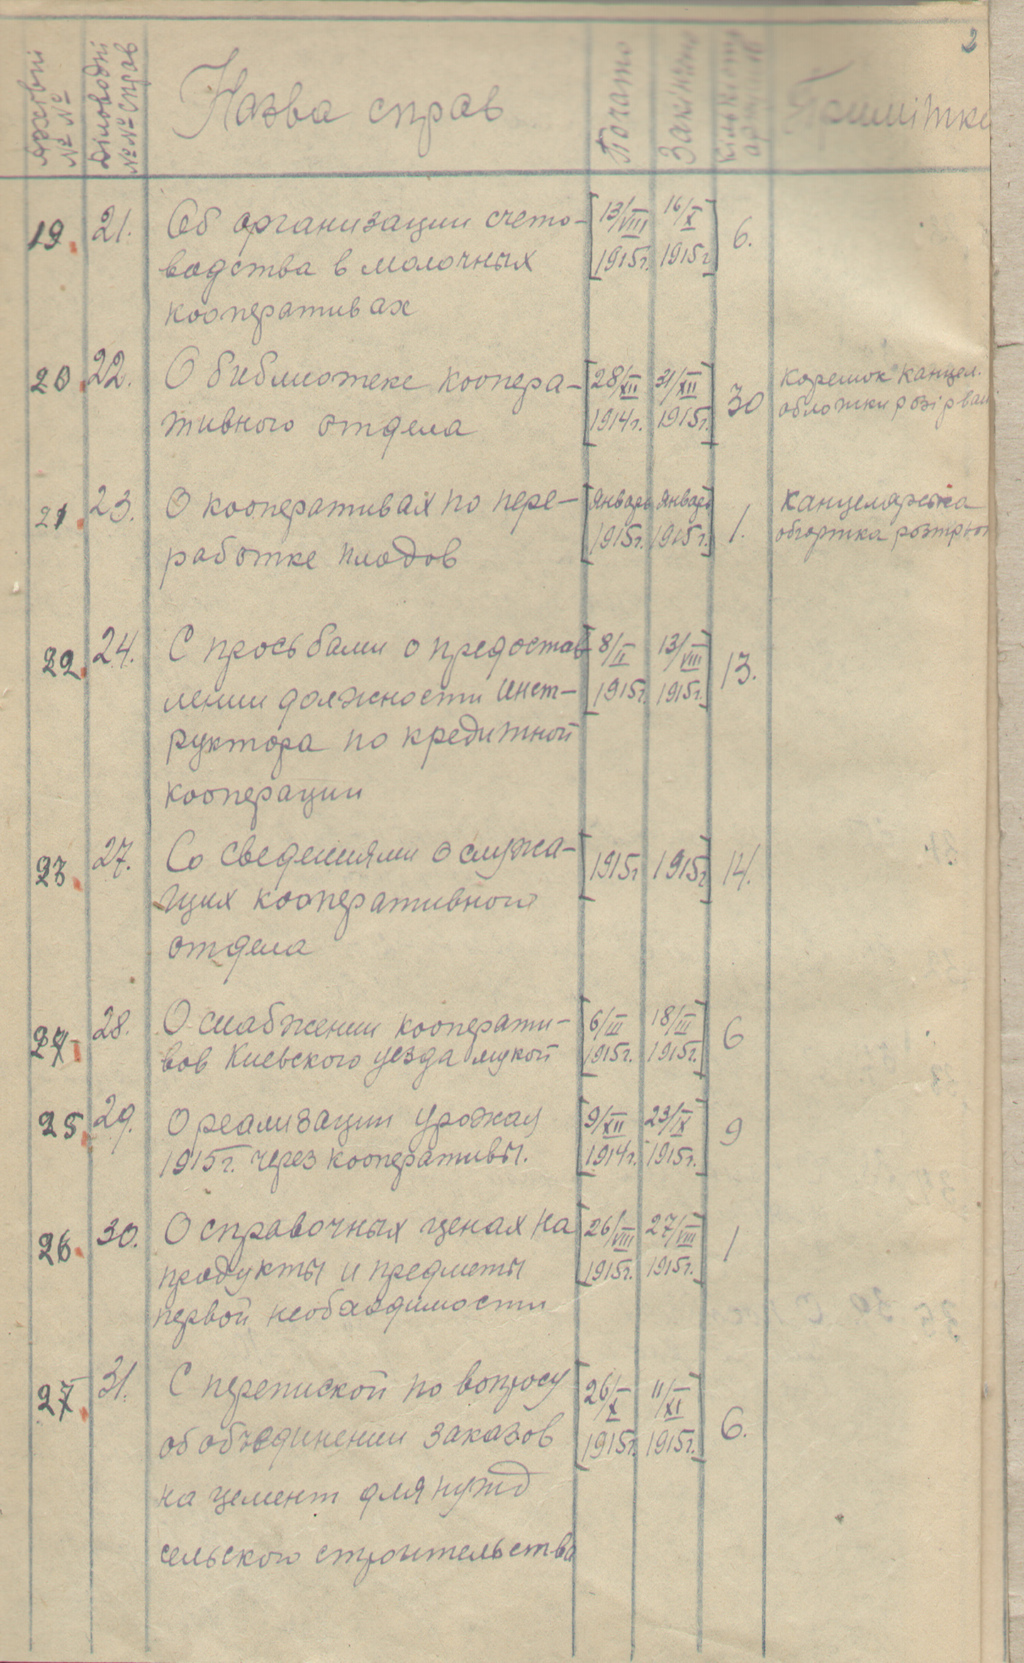 2
Архівні №№ Діловодні №№ справ Назва справ Почато Закінчено Примітки
19. 21. Об организации счето- [13/VIII 16/X] 6.
водства в молочных 1915г. 1915г
кооперативах
20. 22. О библиотеке коопера- [28/XII 31/XII] 30 Корешок канцел.
тивного отдела 1914г. 1915г. обложки
21. 23. О кооперативах по пере- [Январь Январь] 1. Канцелярська
работке плодов 1915г. 1915г. обгортка
22. 24. С просьбами о предостав [8/II 13/VIII] 13.
лении должности инст- 1915г. 1915г.
руктора по кредитной
кооперации
23. 27. Со сведениями о служа- [1915г 1915г] 14.
щих кооперативного
отдела
24. 28. О снабжении кооперати- [6/III 18/III] 6
вов Киевского уезда мукой 1915г. 1915г.
25. 29. О реализации урожая [9/XII 23/X] 9
1915г. через кооперативы. 1914г. 1915г.
26. 30. О справочных ценах на [26/VIII 27/VIII] 1
продукты и предметы 1915г. 1915г.
первой необходимости
27. 31. С перепиской по вопросу [26/X 11/XI] 6.
об объединении заказов 1915г. 1915г.
на цемент для нужд
сельского строительства